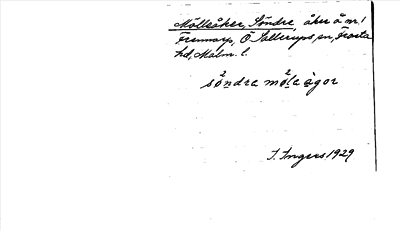 Möllsåker, Söndre, åker å nr 1
Fremmarp, Ö Sallerups sn, Frosta
hd, Malm. l.
söndra möla ågor
I. Ingers 1929